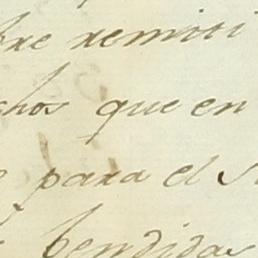 bre remiti
chos que en
para el S
bendidas